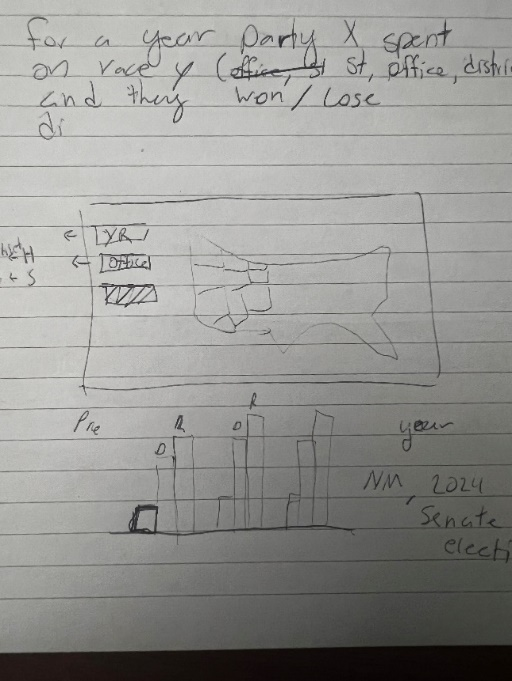 for a year party X spent
on race y (office, st St, office, distri
and they won / Lose
di
YR
Office
H
S
Pre
D R D R
year
NM, 2024
Senate
electi